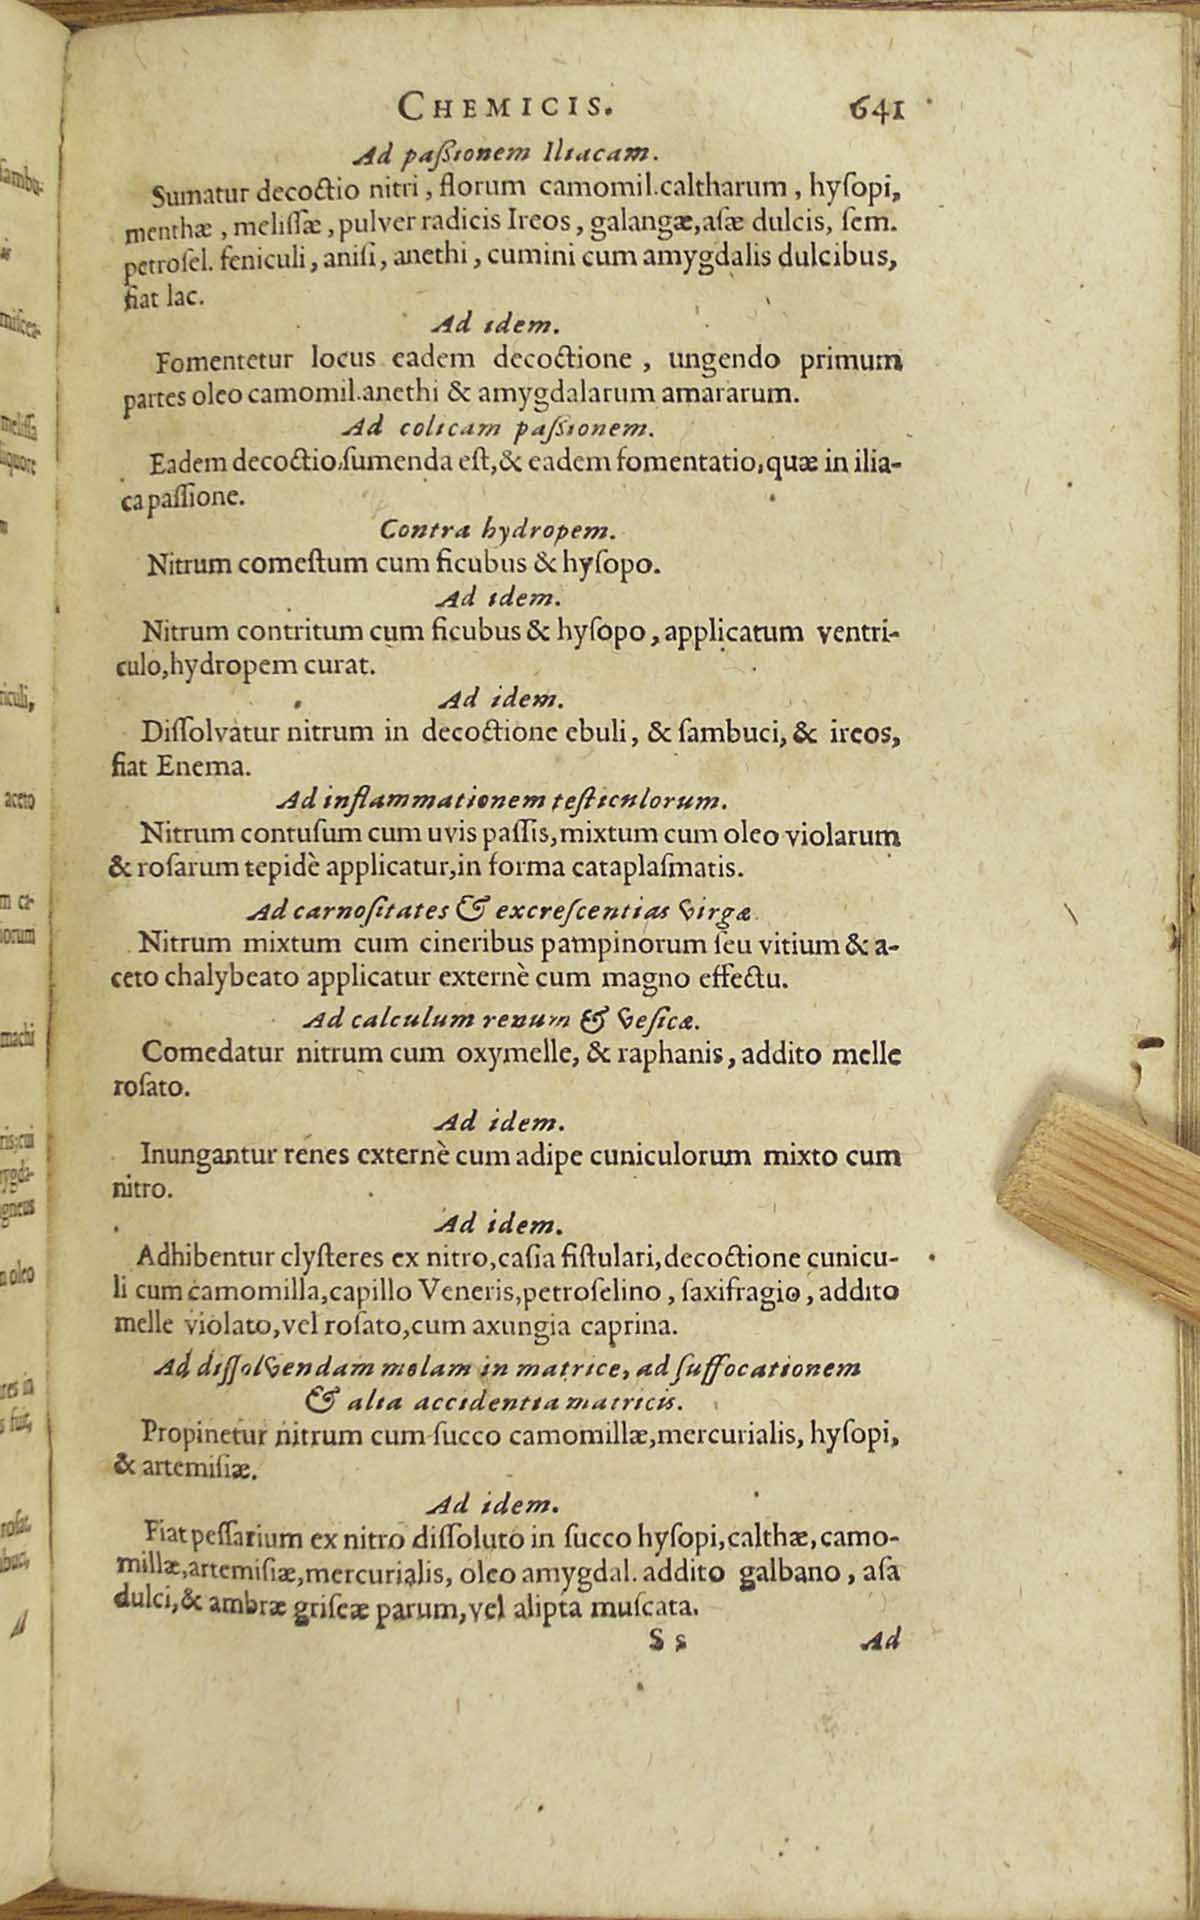 CHEMICIS. 641
Ad paſsionem Iliacam.
Sumatur decoctio nitri, florum camomil.caltharum, hyſopi,
menthæ, meliſſæ, pulver radicis Ireos, galangæ, aſæ dulcis, ſem.
petroſel. feniculi, aniſi, anethi, cumini cum amygdalis dulcibus,
fiat lac.
Ad idem.
Fomentetur locus eadem decoctione, ungendo primum
partes oleo camomil.anethi & amygdalarum amararum.
Ad colicam paſſionem.
Eadem decoctio ſumenda eſt, & eadem fomentatio, quæ in ilia-
ca paſſione.
Contra hydropem.
Nitrum comeſtum cum ficubus & hyſopo.
Ad idem.
Nitrum contritum cum ficubus & hyſopo, applicatum ventri-
culo, hydropem curat.
Ad idem.
Diſſolvatur nitrum in decoctione ebuli, & ſambuci, & ireos,
fiat Enema.
Ad inflammationem teſticulorum.
Nitrum contuſum cum uvis paſſis, mixtum cum oleo violarum
& roſarum tepidè applicatur, in forma cataplaſmatis.
Ad carnoſitates & excreſcentias virgæ.
Nitrum mixtum cum cineribus pampinorum ſeu vitium & a-
ceto chalybeato applicatur externè cum magno effectu.
Ad calculum renum & veſicæ.
Comedatur nitrum cum oxymelle, & raphanis, addito melle
roſato.
Ad idem.
Inungantur renes externè cum adipe cuniculorum mixto cum
nitro.
Ad idem.
Adhibentur clyſteres ex nitro, caſia fiſtulari, decoctione cunicu-
li cum camomilla, capillo Veneris, petroſelino, ſaxifragio, addito
melle violato, vel roſato, cum axungia caprina.
Ad diſſolvendam molam in matrice, ad ſuffocationem
& alia accidentia matricis.
Propinetur nitrum cum ſucco camomillæ, mercurialis, hyſopi,
& artemiſiæ.
Ad idem.
Fiat peſſarium ex nitro diſſoluto in ſucco hyſopi, calthæ, camo-
millæ, artemiſiæ, mercurialis, oleo amygdal. addito galbano, aſa
dulci, & ambræ griſeæ parum, vel alipta muſcata.
S s Ad